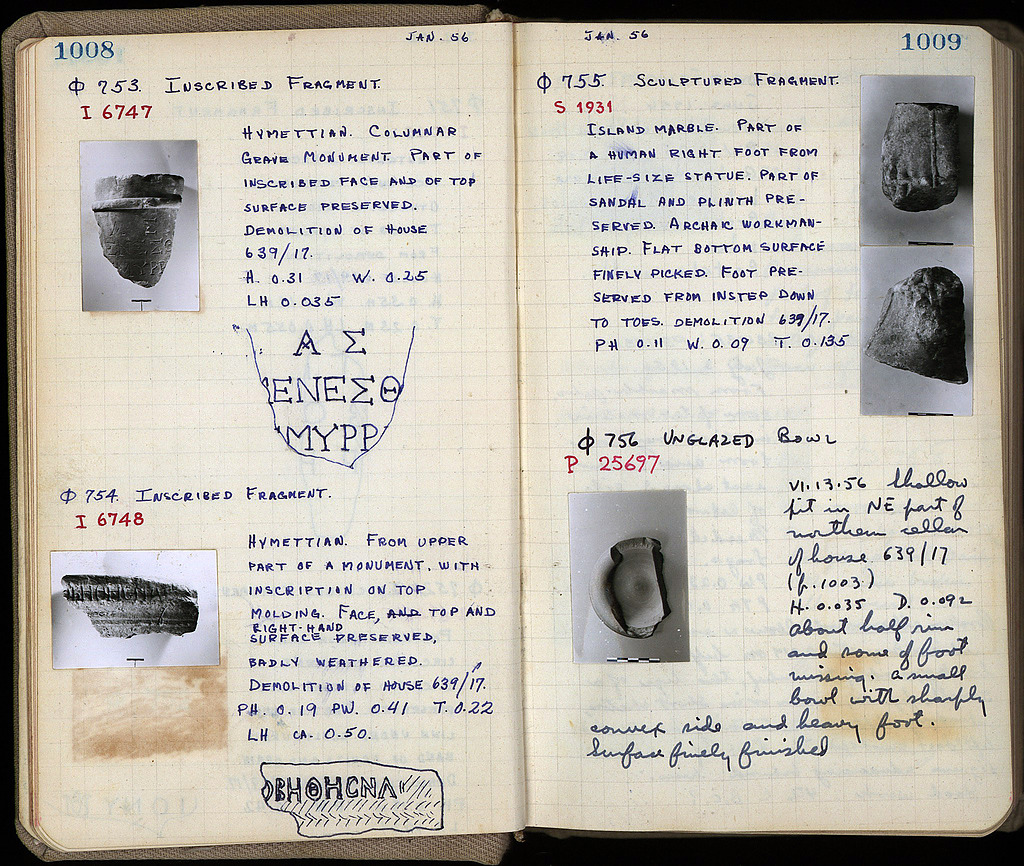 1008
JAN. 56
Φ 753. INSCRIBED FRAGMENT.
I 6747
HYMETTIAN. COLUMNAR
GRAVE MONUMENT. PART OF
INSCRIBED FACE AND OF TOP
SURFACE PRESERVED.
DEMOLITION OF HOUSE
639/17.
H. 0.31 W. 0.25
LH 0.035
Α Σ
ΕΝΕΣΘ
ΜΥΡΡ
Φ 754. INSCRIBED FRAGMENT.
I 6748
HYMETTIAN. FROM UPPER
PART OF A MONUMENT, WITH
INSCRIPTION ON TOP
MOLDING. FACE, AND TOP AND
RIGHT-HAND
SURFACE PRESERVED,
BADLY WEATHERED.
DEMOLITION OF HOUSE 639/17.
PH. 0.19 PW. 0.41 T. 0.22
LH CA. 0.50.
ΒΗΘΗCΝΛ
JAN. 56
1009
Φ 755. SCULPTURED FRAGMENT.
S 1931
ISLAND MARBLE. PART OF
A HUMAN RIGHT FOOT FROM
LIFE-SIZE STATUE. PART OF
SANDAL AND PLINTH PRE-
SERVED. ARCHAIC WORKMAN-
SHIP. FLAT BOTTOM SURFACE
FINELY PICKED. FOOT PRE-
SERVED FROM INSTEP DOWN
TO TOES. DEMOLITION 639/17.
PH 0.11 W. 0.09 T. 0.135
Φ 756 UNGLAZED BOWL
P 25697
VI.13.56 Shallow
pit in NE part of
northern cellar
of house 639/17
(p. 1003)
H. 0.035 D. 0.092
about half rim
and some of foot
missing. a small
bowl with sharply
convex side and heavy foot.
Surface finely finished